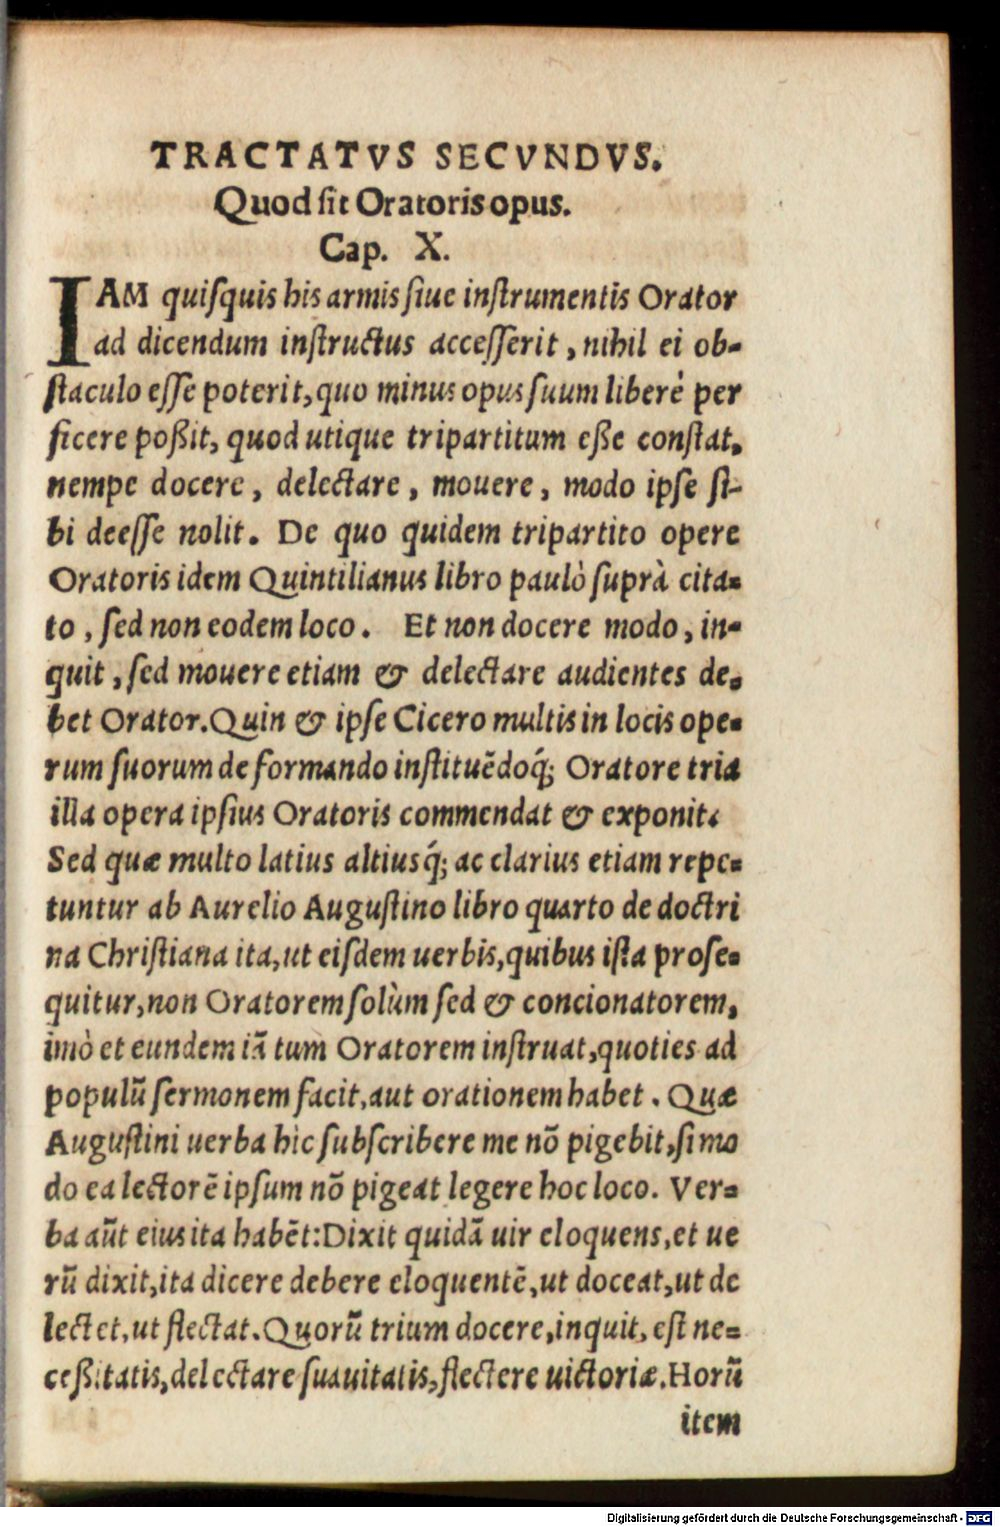 TRACTATVS SECVNDVS.
Quod sit Oratoris opus.
Cap. X.
IAM quiſquis his armis ſiue inſtrumentis Orator
ad dicendum inſtructus acceſſerit, nihil ei ob-
ſtaculo eſſe poterit, quo minus opus ſuum liberè per
ficere poßit, quod utique tripartitum eße conſtat,
nempe docere, delectare, mouere, modo ipſe ſi-
bi deeſſe nolit. De quo quidem tripartito opere
Oratoris idem Quintilianus libro paulò ſuprà cita-
to, ſed non eodem loco. Et non docere modo, in-
quit, ſed mouere etiam & delectare audientes de-
bet Orator. Quin & ipſe Cicero multis in locis ope-
rum ſuorum de formando inſtituēdoq́; Oratore tria
illa opera ipſius Oratoris commendat & exponit.
Sed quæ multo latius altiusq́; ac clarius etiam repe-
tuntur ab Aurelio Auguſtino libro quarto de doctri
na Chriſtiana ita, ut eiſdem uerbis, quibus iſta proſe-
quitur, non Oratorem ſolùm ſed & concionatorem,
imò et eundem iā tum Oratorem inſtruat, quoties ad
populū ſermonem facit, aut orationem habet. Quæ
Auguſtini uerba hîc ſubſcribere me nō pigebit, ſi mo
do ea lectorē ipſum nō pigeat legere hoc loco. Ver-
ba aūt eius ita habēt: Dixit quidā uir eloquens, et ue
rū dixit, ita dicere debere eloquentē, ut doceat, ut de
lectet, ut flectat. Quorū trium docere, inquit, eſt ne-
ceßitatis, delectare ſuauitatis, flectere uictoriæ. Horū
item
Digitalisierung gefördert durch die Deutsche Forschungsgemeinschaft - DFG